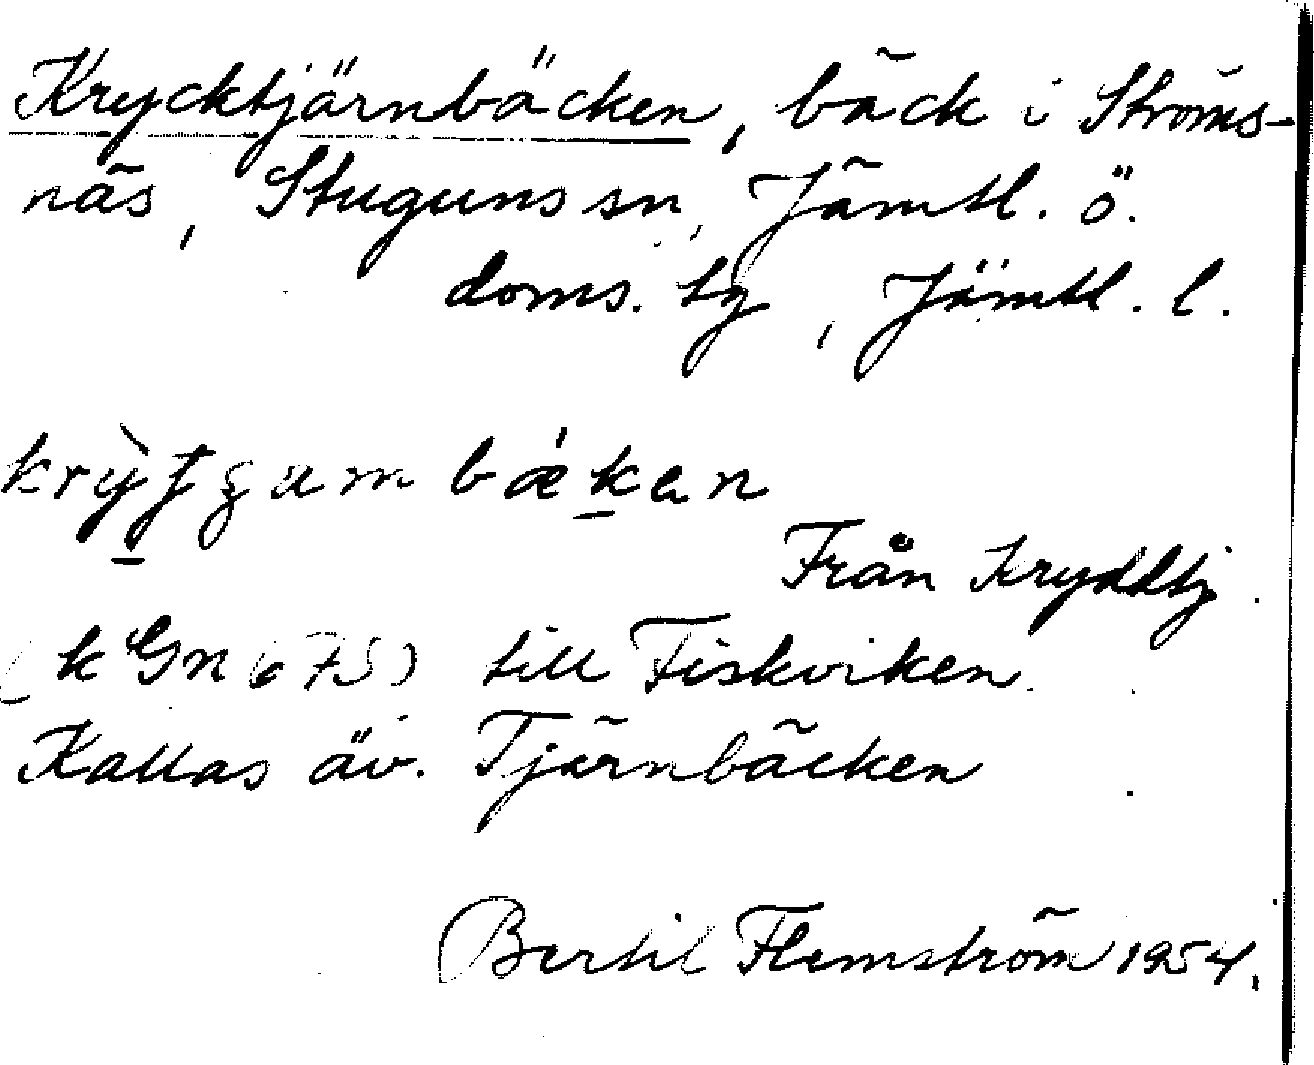 Krycktjärnbäcken, bäck i Ströms-
näs, Stuguns sn, Jämtl. ö.
doms. tg, Jämtl. l.
bǽken
Från Kryddtj.
(k Gn 675) till Fiskviken.
Kallas äv. Tjärnbäcken
Bertil Flemström 1954.